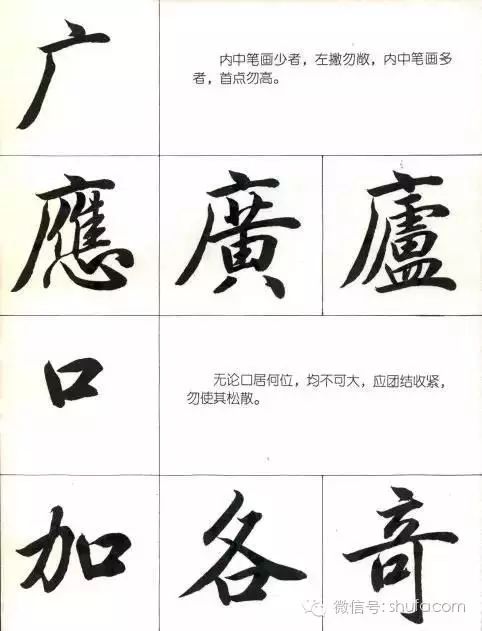 广
内中笔画少者，左撇勿敞，内中笔画多
者，首点勿高。
應 廣 廬
口
无论口居何位，均不可大，应团结收紧，
勿使其松散。
加 各 奇
微信号: shufacom